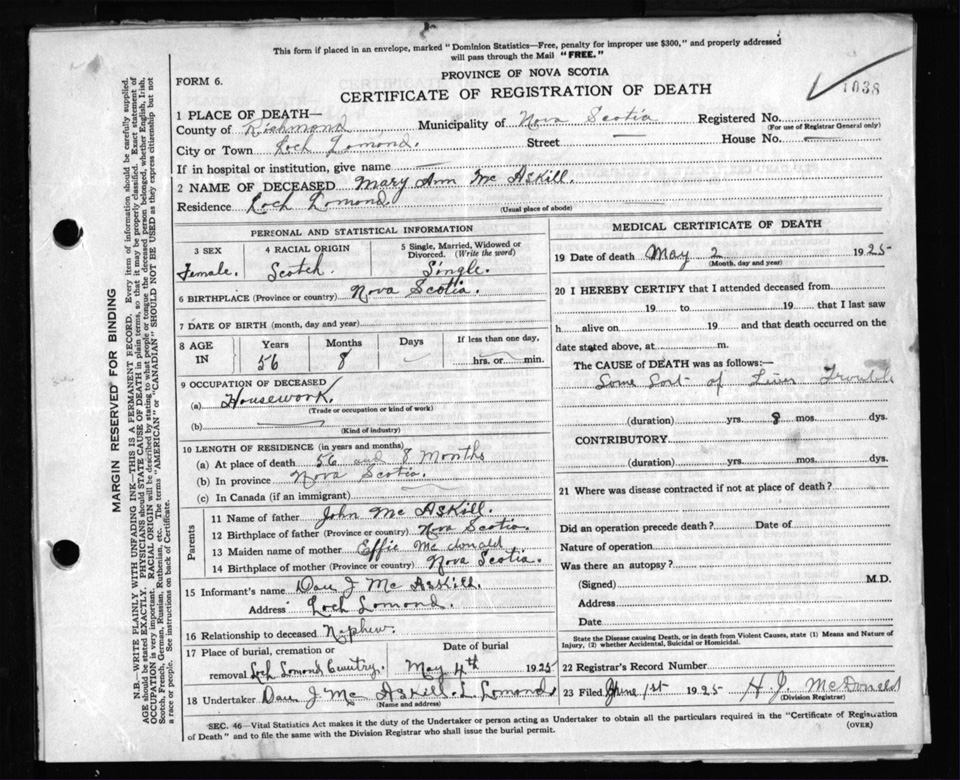 This form if placed in an envelope, marked "Dominion Statistics—Free, penalty for improper use $300," and properly addressed
will pass through the Mail "FREE."
FORM 6.
PROVINCE OF NOVA SCOTIA
CERTIFICATE OF REGISTRATION OF DEATH
1038
1 PLACE OF DEATH—
County of Richmond Municipality of Nova Scotia Registered No.
(For use of Registrar General only)
City or Town Loch Lomond. Street — House No. —
If in hospital or institution, give name —
2 NAME OF DECEASED Mary Ann Mc Askill.
Residence Loch Lomond.
(Usual place of abode)
PERSONAL AND STATISTICAL INFORMATION
3 SEX 4 RACIAL ORIGIN 5 Single, Married, Widowed or
Divorced. (Write the word)
Female. Scotch Single.
6 BIRTHPLACE (Province or country) Nova Scotia.
7 DATE OF BIRTH (month, day and year)
8 AGE IN Years Months Days If less than one day,
56 8 hrs. or min.
9 OCCUPATION OF DECEASED
(a) Housework.
(Trade or occupation or kind of work)
(b)
(Kind of industry)
10 LENGTH OF RESIDENCE (in years and months)
(a) At place of death 56 and 8 Months
(b) In province Nova Scotia.
(c) In Canada (if an immigrant)
Parents
11 Name of father John Mc Askill.
12 Birthplace of father (Province or country) Nova Scotia
13 Maiden name of mother Effie Mc donald
14 Birthplace of mother (Province or country) Nova Scotia.
15 Informant's name Dan J Mc Askill.
Address Loch Lomond.
16 Relationship to deceased Nephew.
17 Place of burial, cremation or Date of burial
removal Loch Lomond May 4th 1925
18 Undertaker Dan J Mc Askill. L Lomond
(Name and address)
MEDICAL CERTIFICATE OF DEATH
19 Date of death May 2 1925
(Month, day and year)
20 I HEREBY CERTIFY that I attended deceased from
19 to 19 that I last saw
h alive on 19 and that death occurred on the
date stated above, at m.
The CAUSE of DEATH was as follows:—
Some Sort of Liver Trouble
(duration) yrs. 8 mos. dys.
CONTRIBUTORY
(duration) yrs. mos. dys.
21 Where was disease contracted if not at place of death?
Did an operation precede death? Date of
Nature of operation
Was there an autopsy?
(Signed) M.D.
Address
Date
State the Disease causing Death, or in death from Violent Causes, state (1) Means and Nature of
Injury, (2) whether Accidental, Suicidal or Homicidal.
22 Registrar's Record Number
23 Filed June 1st 1925 H J. McDonald
(Division Registrar)
SEC. 46—Vital Statistics Act makes it the duty of the Undertaker or person acting as Undertaker to obtain all the particulars required in the "Certificate of Registration
of Death" and to file the same with the Division Registrar who shall issue the burial permit.
(OVER)
MARGIN RESERVED FOR BINDING
N.B.—WRITE PLAINLY WITH UNFADING INK—THIS IS A PERMANENT RECORD. Every item of information should be carefully supplied.
AGE should be stated EXACTLY. PHYSICIANS should STATE CAUSE OF DEATH in plain terms, so that it may be properly classified. Exact statement of
OCCUPATION is very important. RACIAL ORIGIN will be described by stating to what people or tongue the deceased person belonged, whether English, Irish,
Scotch, French, German, Russian, Ruthenian, etc. The terms "AMERICAN" or "CANADIAN" SHOULD NOT BE USED as they express citizenship but not
a race or people. See instructions on back of Certificate.